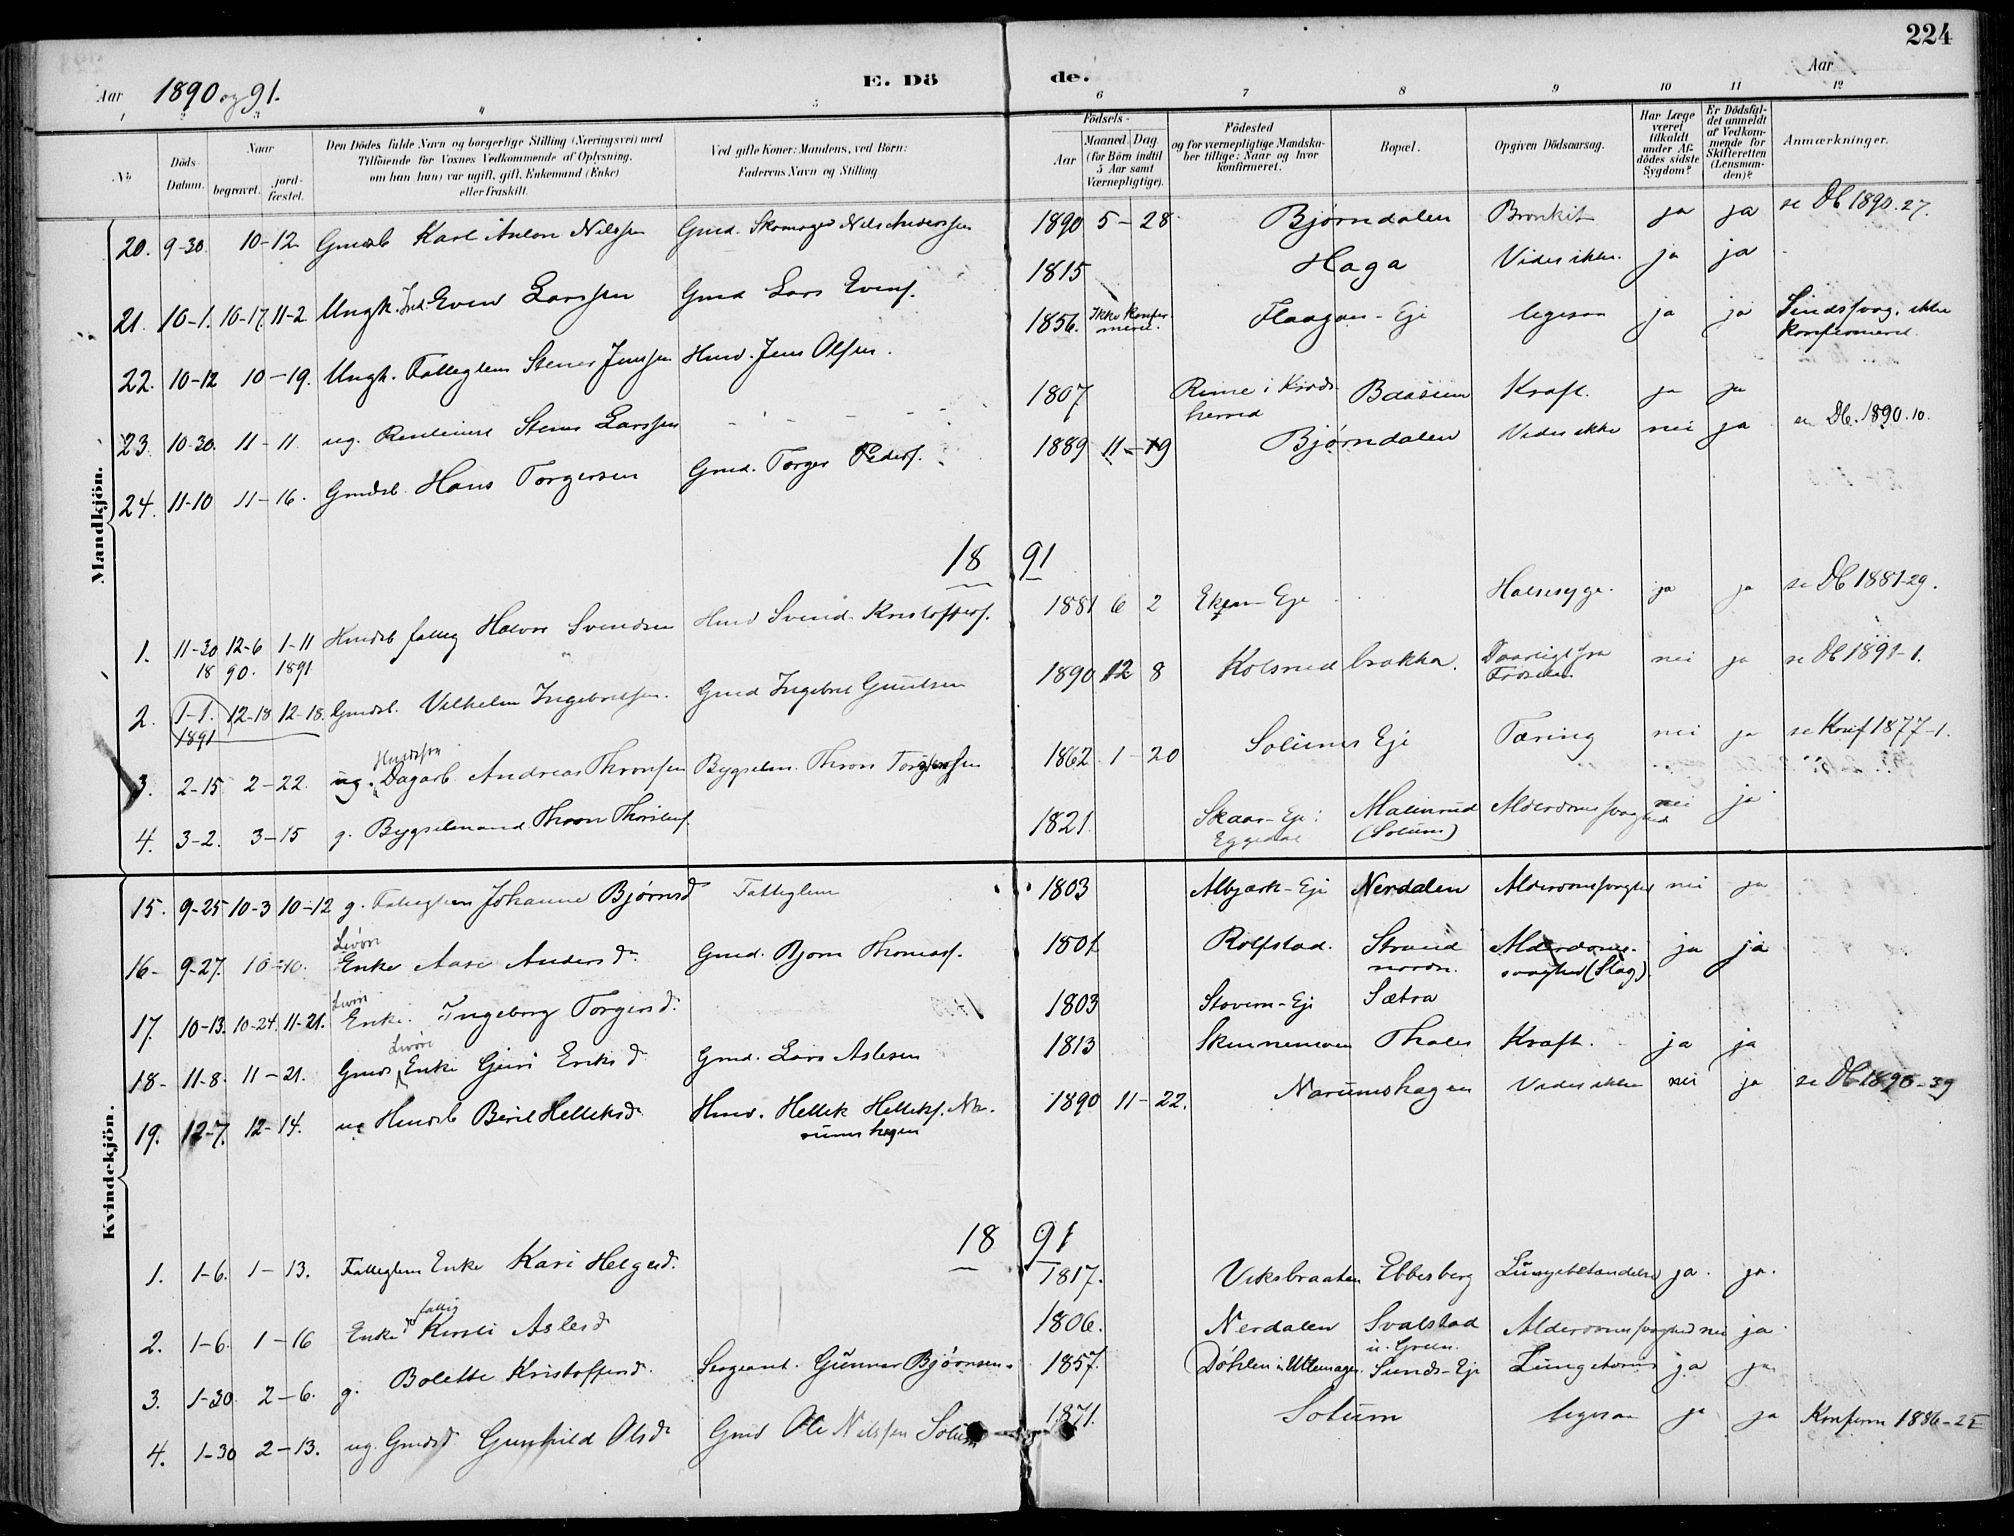 224
Aar 1890 og 91.
E. Dö de.
Aar
1 2 3 4 5 6 7 8 9 10 11 12
No
Döds Datum.
Naar
begravet.
jordfæstet.
Den Dödes fulde Navn og borgerlige Stilling (Næringsvei) med
Tilföiende for Voxnes Vedkommende af Oplysning,
om han (hun) var ugift, gift, Enkemand (Enke)
eller fraskilt.
Ved gifte Koner: Mandens, ved Börn:
Faderens Navn og Stilling
Födsels-
Aar
Maaned. Dag.
(for Börn indtil
5 Aar samt
Værnepligtige).
Födested
og for værnepligtige Mandskaber tillige: Naar og hvor
konfirmeret.
Bopæl.
Opgiven Dödsaarsag.
Har Læge
været
tilkaldt
under Afdödes sidste
Sygdom?
Er Dödsfaldet anmeldt
af Vedkommende for
Skifteretten
(Lensmanden)?
Anmærkninger.
Mandkjön.
20. 9-30. 10-12. Gmdsb Karl Anton Nilssen Gmd. Skomager Nils Anderssen 1890 5-28 Bjørndalen Bronkit ja ja se Db 1890.27.
21. 10-1. 10-17. 11-2 Ungk. Ind. Even Larssen Gmd Lars Evens. 1815 Haga Vides ikke. ja ja
22. 10-12 10-19. Ungk. Fatteglem Stener Jenssen Hmd. Jens Olsen. 1856. Ikke konfermeret. Flaagan-Eje ligesaa ja ja Sindssvag, ikke konfirmeret.
23 10-30. 11-11. ug. Stener Larssen 1807. i Kirdsherred Kræft. ja ja
24. 11-10 11-16. Gmdsb. Hans Torgersen Gmd. Torger Peders. 1889 11-19 Bjørndalen Vides ikke nei ja se Db. 1890.10.
18 91
1. 11-30 12-6 1-11 Hmdsb fattig Halvor Svendsen Hmd Svend Kristoffers. 1881 6 2 Eje Halssyge. ja ja se Db 1881-29.
18 90. 1891
2. 1-1. 12-18 12-18. Gmdsb. Vilhelm Ingebretsen. Gmd Ingebret Gulliksen 1890 12 8 Kolsrudbrakka. Daarligt fra Fødselen. nei ja se Db 1891-1.
1891
3. 2-15 2-22. ug. Dagarb. Andreas Thronsen Bygselm. Thron 1862. 1-20 Solums Eje Tæring nei ja se Konf 1877-1.
4. 3-2. 3-15 g. Bygselmand Thron 1821. Skaar-Eje i Eggedal Malinrud (Solum) Alderdomssvaghed nei ja
Kvindekjön.
15. 9-25 10-3 10-12 g. Fatteglem Johanne Bjørnsd Fatteglem 1803 Albjærk-Eje Nerdalen Alderdomssvaghed nei ja
16- 9-27. 10-10. Enke Aase Andersd. Gmd. Bjørn Thomass. 1801 Rolfstad. Strand nordr. Alderdomssvaghed (Slag). ja ja
17. 10-13. 10-24. 11-21. Enke. Ingeborg Torgersd. 1803 Stovern-Eje Sætra
18- 11-8. 11-21. Gmds Enke Guri Eriksd Gmd. Lars Aslesen 1813 Skinnemoen Thales Kræft. ja ja
19. 12-7. 12-14. ug Hmdsb Beret Helleksd. Hmd. Hellek Helleks. Narumshagen 1890 11-22. Narumshagen Vides ikke nei ja se Db 1890-39
18 91
1. 1-6. 1-13. Fatteglem Enke Kari Helgesd. 1817. Viksbraaten Ebbesberg Lungebetændelse ja. ja.
2. 1-6. 1-16 Enke fattig Kirsti Aslesd 1806. Nerdalen Svalstad u. Green. Alderdomssvaghed nei ja
3. 1-30 2-6. g. Bolette Kristoffersd. Sergeant. Gunnar Bjørnsen. 1857. Døhlen Sunds-Eje ja ja
4. 1-30 2-13. ug. Gmdsd Gunhild Olsd Gmd Ole Nilssen Solum 1871. Solum ligesaa ja ja Konferm 1886-